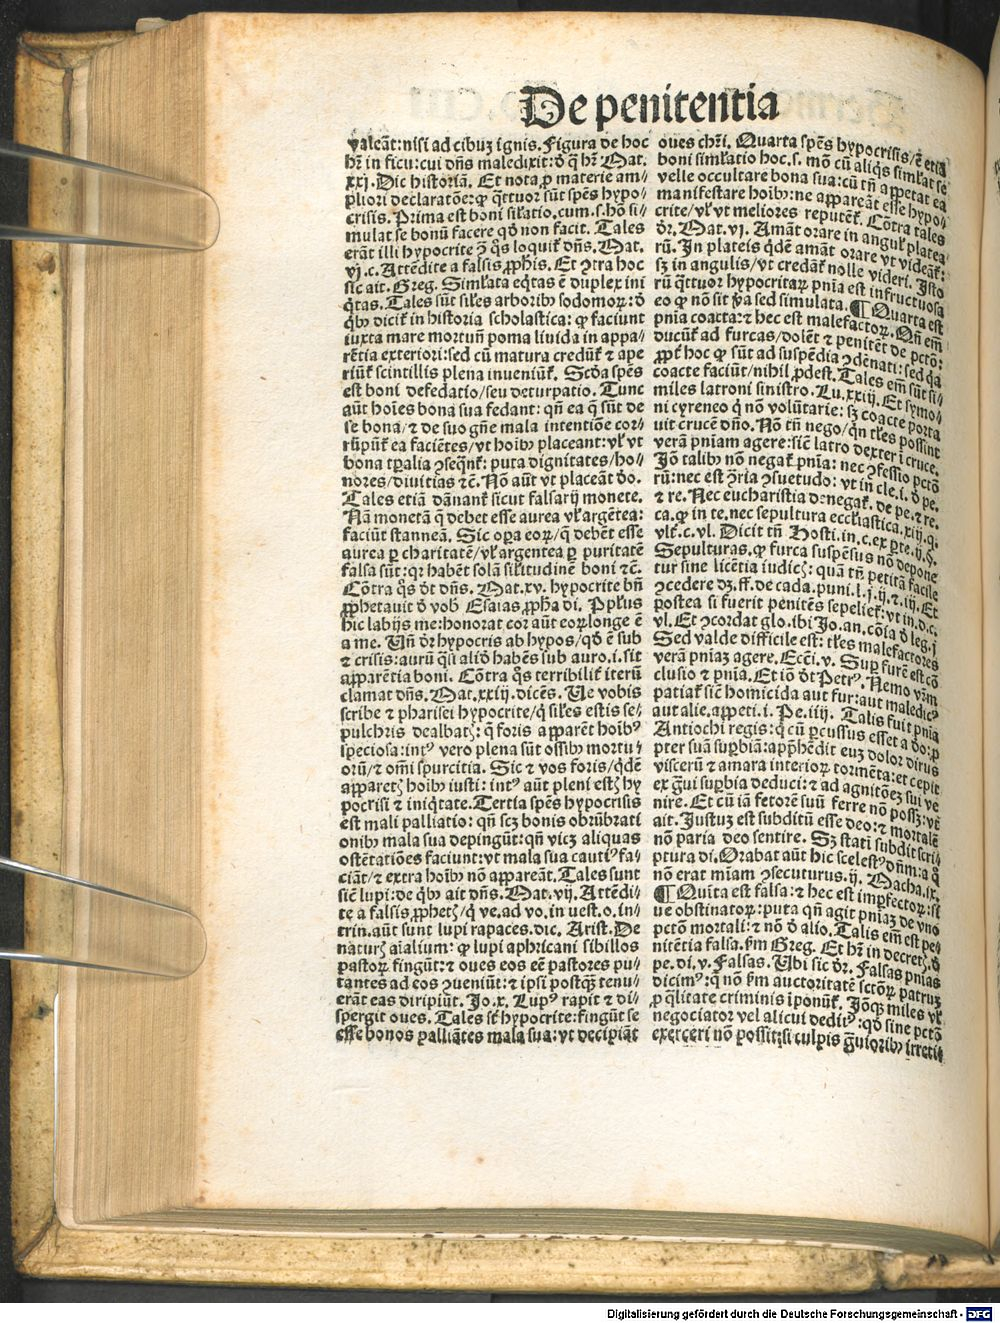 De penitentia
valeāt:nisi ad cibuʒ ignis. Figura de hoc
hr̄ in ficu:cui dñs maledixit:ð q̄ hr̄ Mat.
xxj. Dic historiā. Et nota ꝓ materie am⸗
pliori declaratōe: ꝙ q̄ttuor sūt spēs hypo⸗
crisis. Prima est boni sil̄atio.cum.s.hō si⸗
mulat se bonū facere qð non facit. Tales
erāt illi hypocrite ꝯ̄ q̄s loquit̄ dñs. Mat.
vj.c. Attēdite a falsis ꝓphis. Et ꝯtra hoc
sic ait. Greg. Siml̄ata eq̄tas ē duplex ini
q̄tas. Tales sūt sil̄es arborib⁹ sodomoꝝ: ð
q̄b⁹ dicit̄ in historia scholastica: ꝙ faciunt
iuxta mare mortuū poma liuida in appa⸗
rētia exteriori:sed cū matura credūt̄ ⁊ ape
riūt̄ scintillis plena inueniūt̄. Scða spēs
est boni defedatio/seu deturpatio. Tunc
aūt hoīes bona sua fedant: qñ ea q̄ sūt de
se bona/⁊ de suo gn̄e mala intentiōe cor⸗
rūpūt̄ ea faciētes/vt hoib⁹ placeant:vl̄ vt
bona tꝑalia ꝯseqn̄t̄: puta dignitates/ho⸗
nores/diuitias ⁊c̄. Nō aūt vt placeāt ðo.
Tales etiā dānant̄ sicut falsarij monete.
Nā monetā q̄ debet esse aurea vl̄ argētea:
faciūt stanneā. Sic oꝑa eoꝝ/q̄ debēt esse
aurea ꝑ charitatē/vl̄ argentea ꝑ puritatē
falsa sūt: qꝛ habēt solā sil̄itudinē boni ⁊c̄.
Cōtra q̄s ðt dñs. Mat.xv. hypocrite bñ
ꝓphetauit ð vob̄ Esaias ꝓpha di. Ppl̄us
hic labijs me:honorat cor aūt eoꝝ longe ē
a me. Uñ ðr hypocris ab hypos/qð ē sub
⁊ crisis: aurū q̄si alið habēs sub auro.i.sit
apparētia boni. Cōtra q̄s terribilit̄ iterū
clamat dñs. Mat.xxiij. dicēs. Ue vobis
scribe ⁊ pharisei hypocrite/q̄ sil̄es estis se⸗
pulchris dealbatꝭ: q̄ foris apparēt hoib⁹
speciosa: int⁹ vero plena sūt ossib⁹ mortu⸗
orū/⁊ om̄i spurcitia. Sic ⁊ vos foris/qdē
apparetꝭ hoib⁹ iusti: int⁹ aūt pleni estꝭ hy
pocrisi ⁊ iniq̄tate. Tertia spēs hypocrisis
est mali palliatio: qñ scʒ bonis obrūbrati
onib⁹ mala sua depingūt: qñ vicʒ aliquas
ostētatiōes faciunt:vt mala sua cauti⁹ fa⸗
ciāt/⁊ extra hoib⁹ nō appareāt. Tales sunt
sic̄ lupi: de q̄b⁹ ait dñs. Mat. vij. Attēdi⸗
te a falsis ꝓphetꝭ/q̄ ve.ad vo.in uest.o.in⸗
trin.aūt sunt lupi rapaces.dic. Arist. De
naturꝭ aīalium: ꝙ lupi aphricani sibillos
pastoꝝ fingūt: ⁊ oues eos eē pastores pu⸗
tantes ad eos ꝯueniūt: ⁊ ipsi postqʒ tenu⸗
erāt eas diripiūt. Jo.x. Lup⁹ rapit ⁊ di⸗
spergit oues. Tales st̄ hypocrite: fingūt se
esse bonos palliātes mala sua: vt decipiāt
oues chr̄i. Quarta spēs hypocrisis/ē etiā
boni siml̄atio hoc.s. mō cū aliq̄s siml̄at se
velle occultare bona sua: cū tñ appetat ea
manifestare hoib⁹: ne appareāt esse hypo⸗
crite/vl̄ vt meliores reputēt̄. Cōtra tales
ðr. Mat. vj. Amāt orare in angul̄ platea⸗
rū. Jn plateis qdē amāt orare vt videāt̄:
sʒ in angulis/vt credāt̄ nolle videri. Jsto
rū q̄ttuor hypocritaꝝ pñia est infructuosa
eo ꝙ nō sit ꝟa sed simulata. ¶ Quarta est
pñia coacta: ⁊ hec est malefactoꝝ. Qñ em̄
ducūt̄ ad furcas/dolēt ⁊ penitēt de pctō:
ꝓpt̄ hoc ꝙ sūt ad suspēdia ꝯdēnati: sed q̄a
coacte faciūt/nihil ꝓdest. Tales em̄ sūt si⸗
miles latroni sinistro. Lu.xxiij. Et symo⸗
ni cyreneo q̄ nō volūtarie: sʒ coacte porta
uit crucē dño. Nō tñ nego/qn̄ tl̄es possint
verā pn̄iam agere: sic̄ latro dexter ī cruce.
Jō talib⁹ nō negat̄ pñia: nec ꝯfessio pctō
rū: nec est ꝯ̄ria ꝯsuetudo: vt in cle.i. ð pe.
⁊ re. Nec eucharistia denegat̄. de pe.⁊ re.
ca. ꝙ in te. nec sepultura ecclīastica. xiij.q.
vlt̄.c.vl. Dicit tñ Hosti.in.c. ex ꝑte.ij.ð.
Sepulturas. ꝙ furca suspēsus nō depone
tur sine licētia iudicꝭ: quā tñ petitā facile
ꝯcedere dʒ. ff. de cada. puni. l.j.ij.⁊.iij. Et
postea si fuerit penitēs sepeliet̄: vt in.d.c.
vl. Et ꝯcordat glo.ibi Jo.an. cōia ð leg.j
Sed valde difficile est: tl̄es malefactores
verā pñiaʒ agere. Eccī.v. Suꝑ furē est cō
clusio ⁊ pñia. Et iō ðt Petr⁹. Nemo vr̄m
patiat̄ sic̄ homicida aut fur: aut maledic⁹
aut alie.appeti. i. Pe.iiij. Talis fuit pñia
Antiochi regis: q̄ cū ꝑcussus esset a ðo: ꝓ
pter suā suꝑbiā: app̄hēdit euʒ dolor dirus
viscerū ⁊ amara interioꝝ tormēta: et cepit
ex gͣui suꝑbia deduci: ⁊ ad agnitōeʒ sui ve
nire. Et cū iā fetorē suū ferre nō possʒ: vt̄
ait. Justuʒ est subditū esse deo: ⁊ mortalē
nō paria deo sentire. Sʒ stati subdit scri⸗
ptura di. Orabat aūt hic scelest⁹ dñm: a q̄
nō erat miam ꝯsecuturus. ij. Macha.ix.
¶ Quīta est falsa: ⁊ hec est imꝑfectoꝝ: si
ue obstinatoꝝ: puta qñ agit pñiaʒ de vno
pctō mortali: ⁊ nō ð alio. Talis em̄ est pe⸗
nitētia falsa. ẜm Greg. Et hr̄ in decretꝭ. ð
pe. di. v. Falsas. Ubi sic ðr. Falsas pñias
dicim⁹: q̄ nō ẜm auctoritatē sctōꝝ patruʒ
ꝓ q̄litate criminis īponūt̄. Jōqʒ miles vl̄
negociator vel alicui dedit⁹: qð sine pctō
exerceri nō possit: si culpis gͣuiorib⁹ irretit
Digitalisierung gefördert durch die Deutsche Forschungsgemeinschaft - DFG